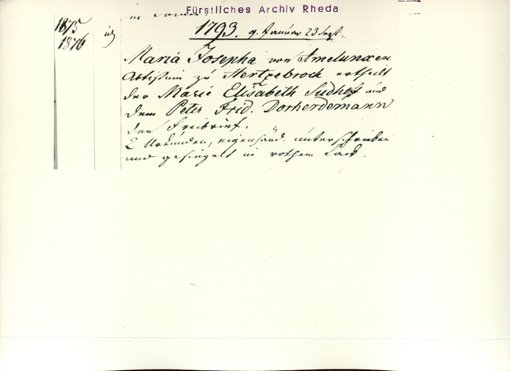 Fürstliches Archiv Rheda
1875
1876
1793. 9. Januar 23 Sept.
Maria Josepha von Amelunxen
Äbtissin zu Hertzebrock ertheilt
der Marie Elisabeth Sudhof und
dem Peter Frid. Dorherdemann
den Freibrief.
2 Urkunden, eigenhänd. unterschrieben
und gesiegelt in rothem Lack.